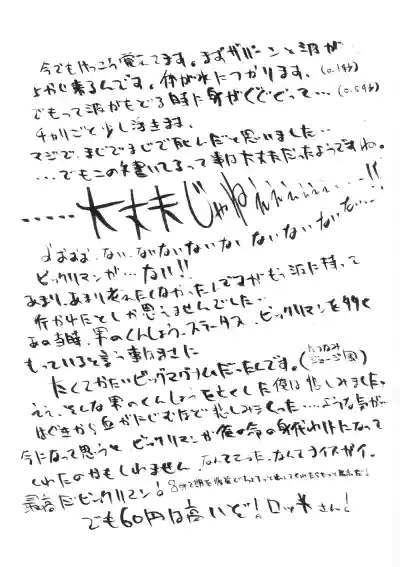 今でもけっこう覚えてます。まずザバーンと波が
よせて来るんです。体が水につかります。(0.1秒)
でもって波がもどる時に身がぐぐぐって…(0.5秒)
チャリごと少し浮きます。
マジで、まじでまじで死んだと思いました‥
…でもこの本書いてるって事は大丈夫だったようですね。
……大丈夫じゃねえええぇぇぇ…!!
ない、ないないないない ないないないな…
ビックリマンが…ない!!
あまり、あまり考えたくなかったですがもう波に持って
行かれたとしか思えませんでした‥
あの当時、男のくんしょう、ステータス、ビックリマンを多く
もっていると言う事はまさに
たくてかたいビッグマグナムだったんです。
ええ、そんな男のくんしょうをなくした俺は悲しみました。
はぐきから血がにじむほど悲しみまくった…ような気が…
今になって思うと ビックリマンが俺の命の身代わりになって
くれたのかもしれません。なんてこった、なんてナイスガイ。
最高だビックリマン!
でも60円は高いぞ!ロッテさん!